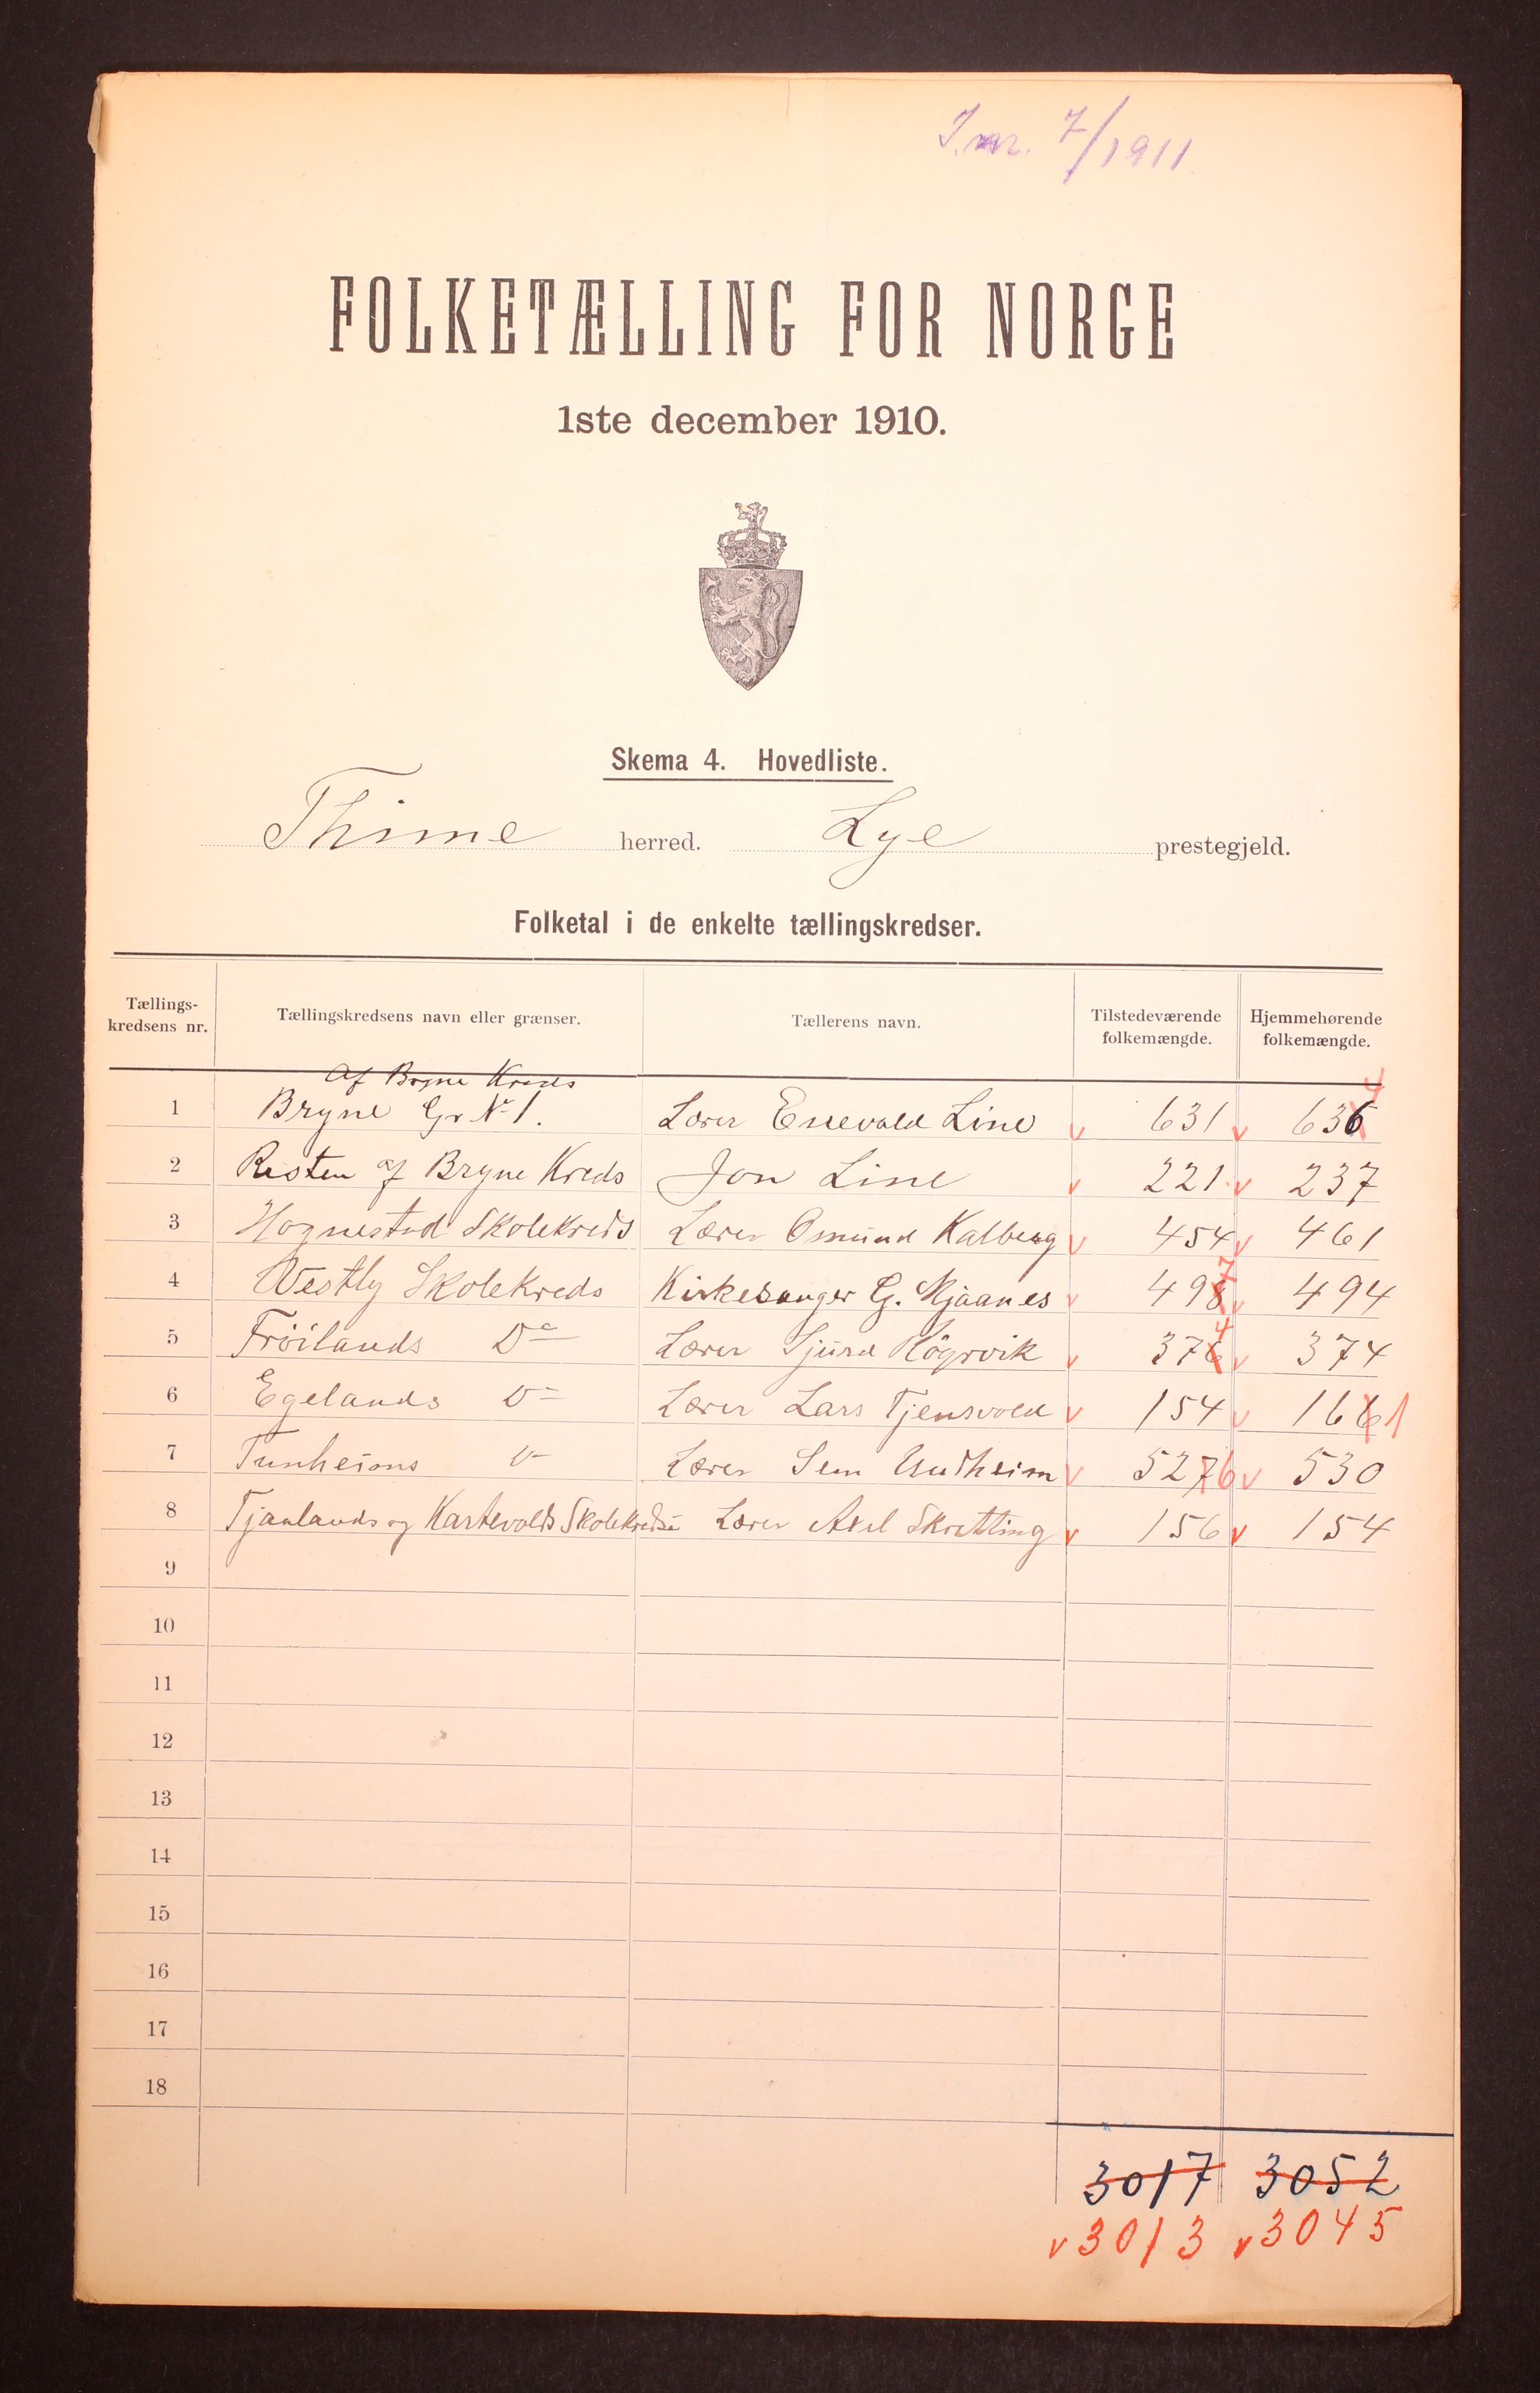 J.nr. 7/1911.
FOLKETÆLLING FOR NORGE
1ste december 1910.
Skema 4. Hovedliste.
Thime herred. Lye prestegjeld.
Folketal i de enkelte tællingskredser.
Tællings-kredsens nr. Tællingskredsens navn eller grænser. Tællerens navn. Tilstedeværende folkemængde. Hjemmehørende folkemængde.
Af Bryne Kreds
1 Bryne Gr No 1. Lærer Enevald Line v 631 v 636 4
2 Resten af Bryne Kreds Jon Line v 221 v 237
3 Hognestad Skolekreds Lærer Osmund Kalberg v 454 v 461
4 Vestly Skolekreds Kirkesanger G. Mjaanes v 498 7 v 494
5 Fröilands Do Lærer Sjurd Högrvik v 376 4 v 374
6 Egelands D= Lærer Lars Tjensvold v 154 v 166 1
7 Tunheims D= Lærer Sem v 527 6 v 530
8 Tjaalands og Kartevolds Skolekredse Lærer Axel Skretting v 156 v 154
9
10
11
12
13
14
15
16
17
18
3017 3052
v 3013 v 3045